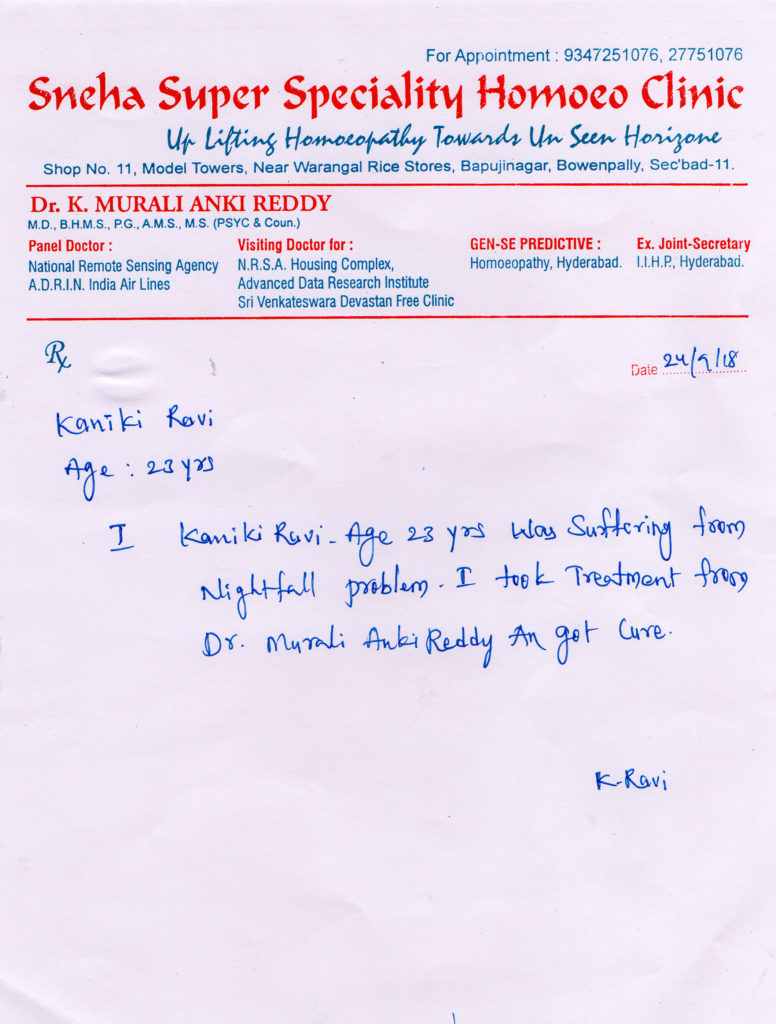 For Appointment : 9347251076, 27751076
Sneha Super Speciality Homoeo Clinic
Up Lifting Homoeopathy Towards Un Seen Horizone
Shop No. 11, Model Towers, Near Warangal Rice Stores, Bapujinagar, Bowenpally, Sec'bad-11.
Dr. K. MURALI ANKI REDDY
M.D., B.H.M.S., P.G., A.M.S., M.S. (PSYC & Coun.)
Panel Doctor :
National Remote Sensing Agency
A.D.R.I.N. India Air Lines
Visiting Doctor for :
N.R.S.A. Housing Complex,
Advanced Data Research Institute
Sri Venkateswara Devastan Free Clinic
GEN-SE PREDICTIVE :
Homoeopathy, Hyderabad.
Ex. Joint-Secretary
I.I.H.P., Hyderabad.
Rx
Date 24/9/18
Kaniki Ravi
Age : 23 yrs
I Kaniki Ravi - Age 23 yrs was Suffering from
Nightfall problem. I took Treatment from
Dr. Murali Anki Reddy An got Cure.
K-Ravi